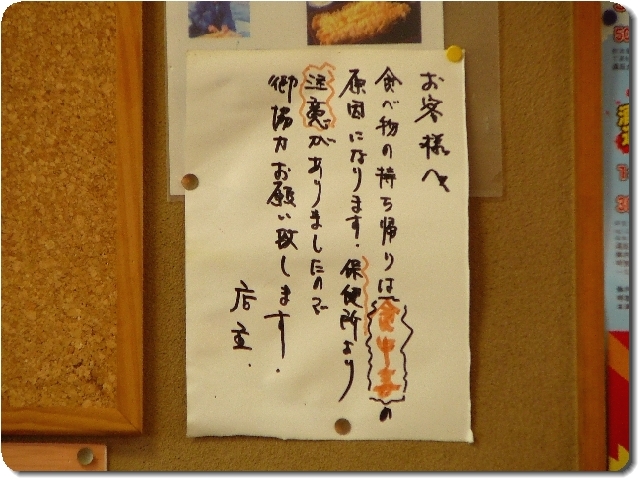 お客様へ
食べ物の持ち帰りは食中毒の
原因になります。保便所より
注意がありましたので
御協力お願い致します.
店主.